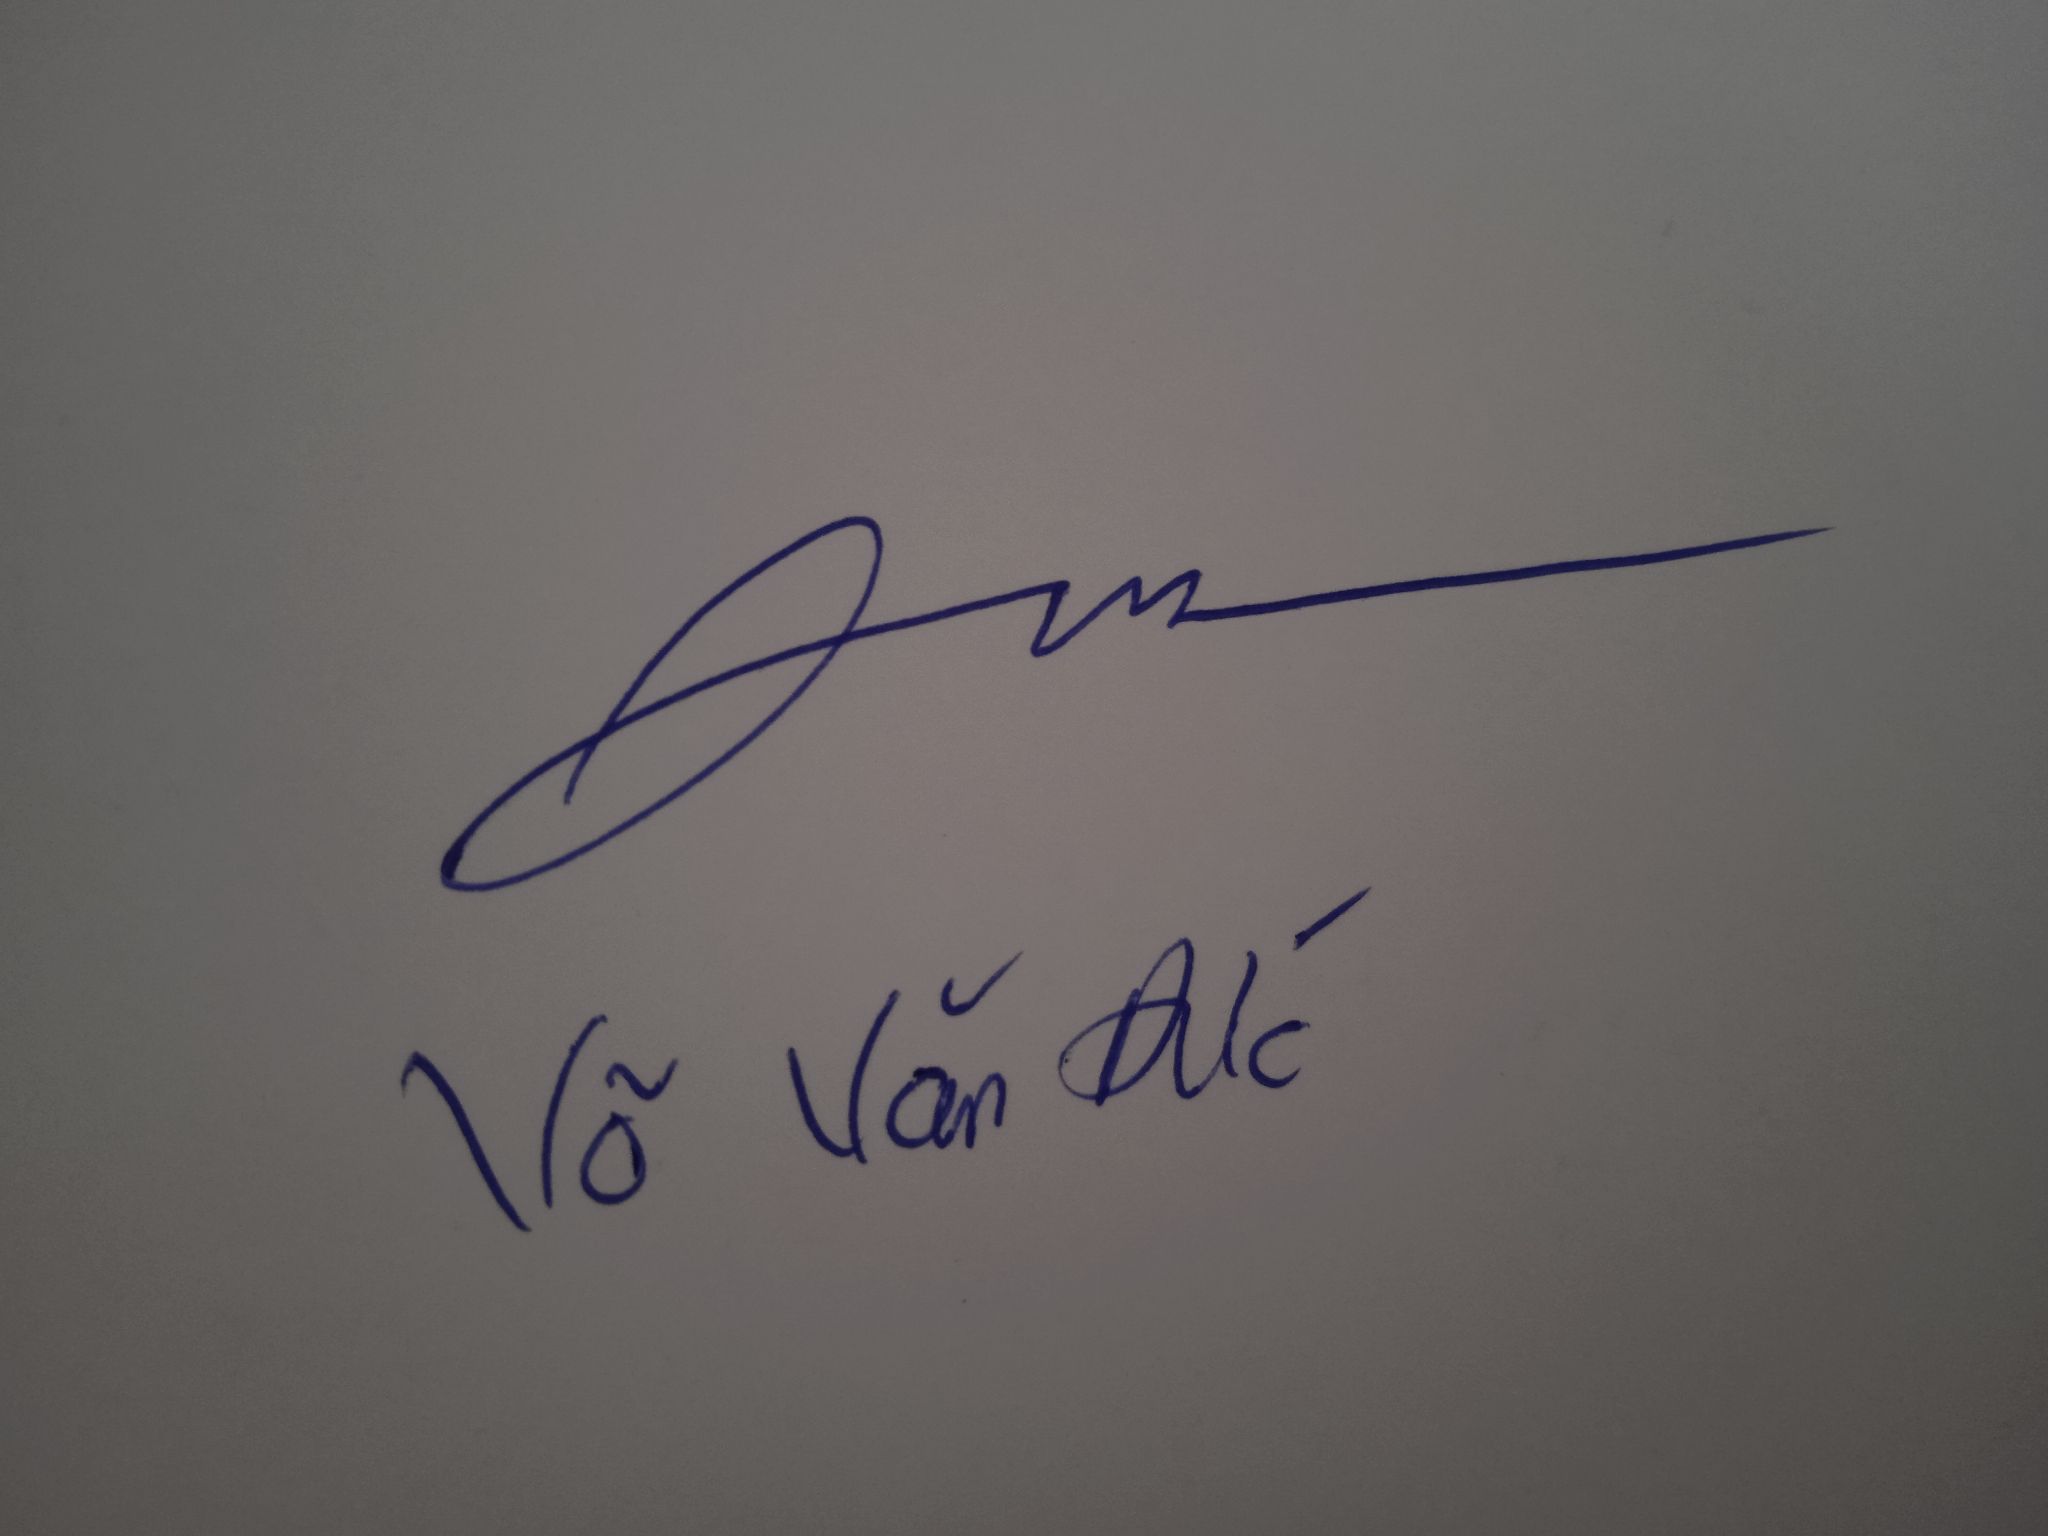 Võ Văn Đức